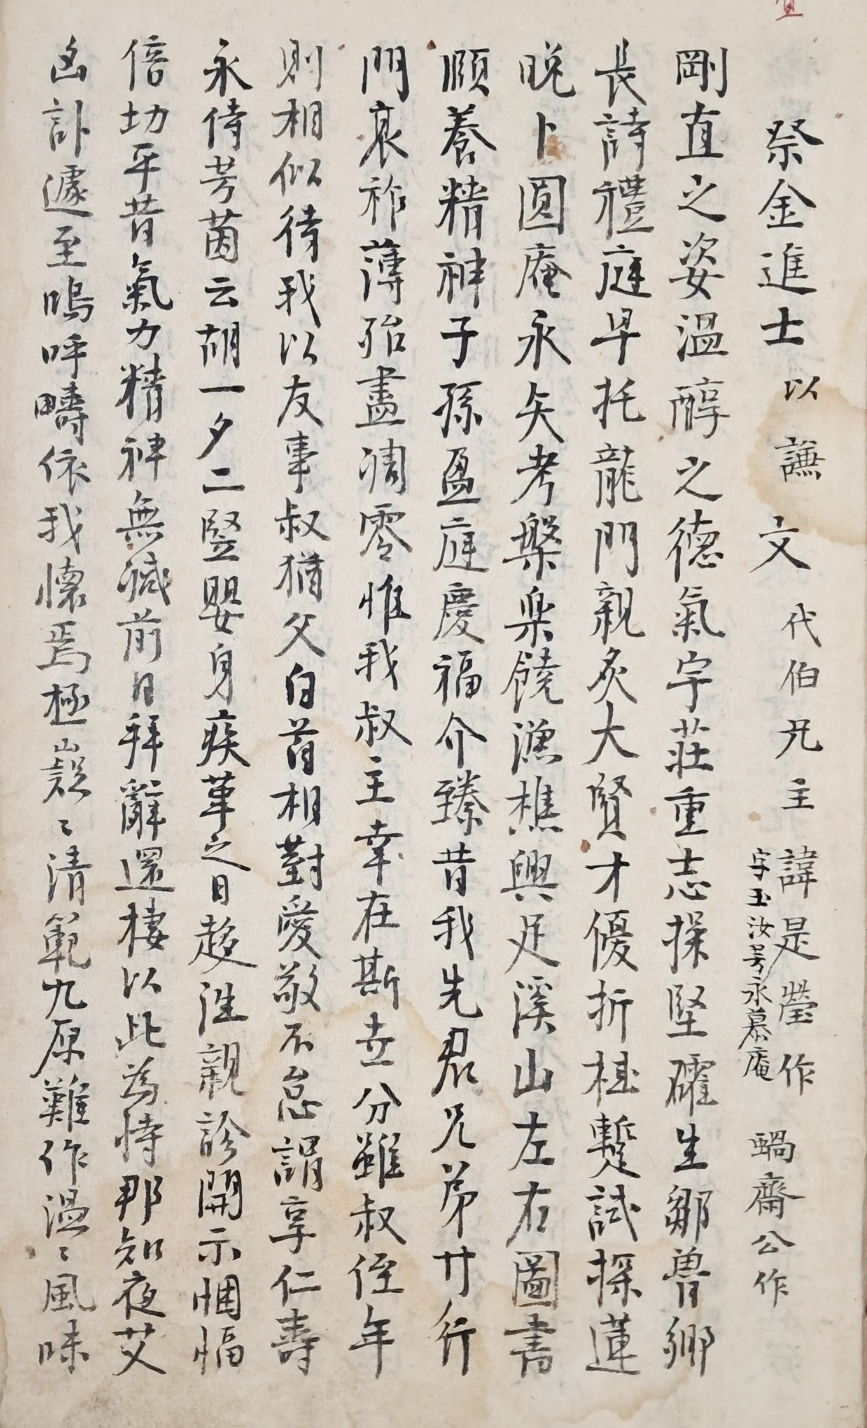 祭金進士以謙文代伯兄主諱是瑩作
字玉汝号永慕庵
蝸齋公作
剛直之姿溫醇之德氣宇莊重志操堅確生鄒魯鄉
長詩禮庭早托龍門親炙大賢才優折桂蹔試探蓮
晩卜圓庵永矢考槃樂饒漁樵興足溪山左右圖書
頤養精神子孫盈庭慶福介臻昔我先君兄弟廿行
門衰祚薄殆盡凋零惟我叔主幸在斯世分雖叔侄年
則相似待我以友事叔猶父白首相對愛敬不怠謂享仁壽
永侍芳茵云胡一夕二竪嬰身疾革之日趍涖親診開示悃愊
倍切平昔氣力精神無減前日拜辭還棲以此爲恃那知夜艾
凶訃遽至嗚呼疇依我懷焉極嶷〻清範九原難作溫〻風味